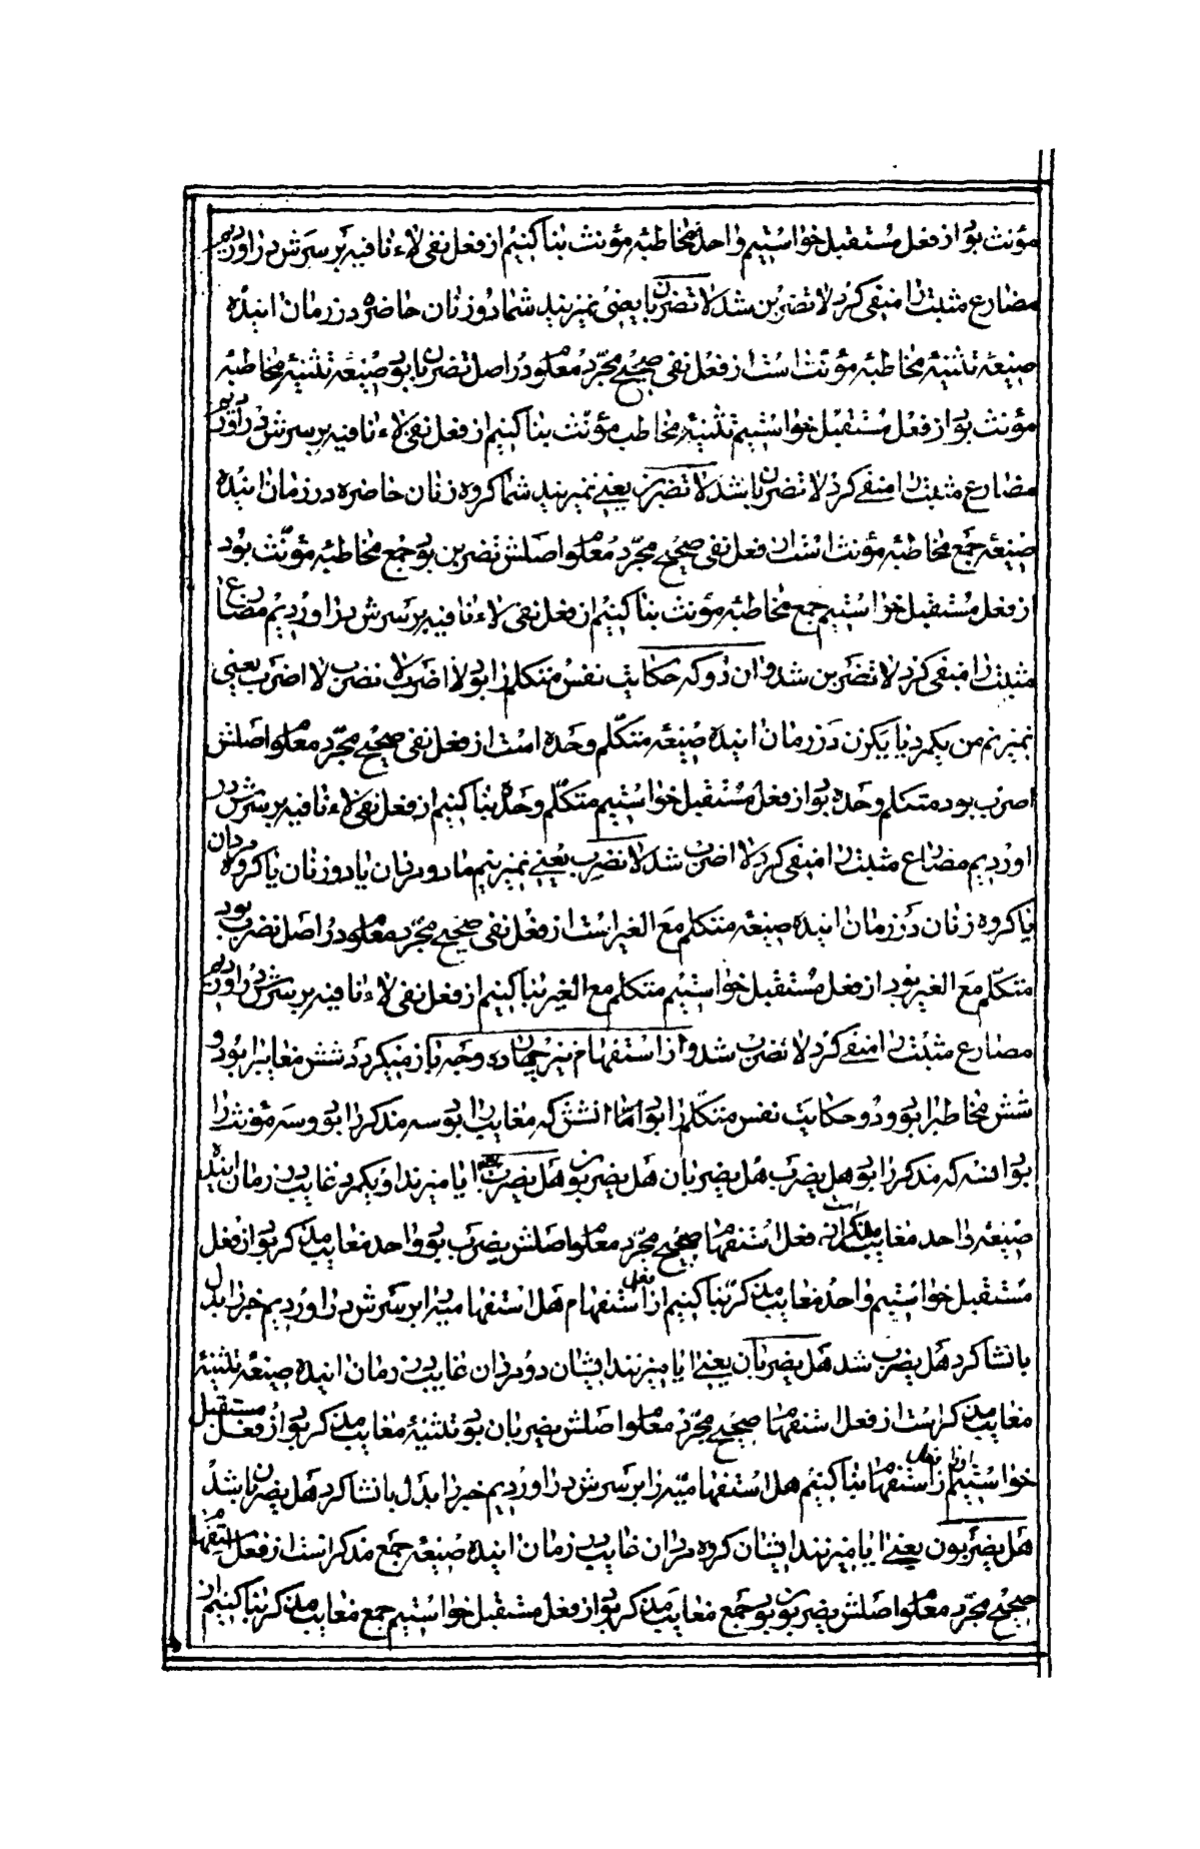 مؤنث بود از فعل مستقبل خواستیم واحده مخاطبه مؤنث بنا کنیم از فعل نفی لاء نافیه بر سرش در اوردیم
مضارع مثبت را منفی کرد لا تضربین شد لا تضربان یعنی نمیزنید شما دو زنان حاضره در زمان اینده
صیغه تثنیه مخاطبه مؤنث است از فعل نفی صحیح مجرد معلوم در اصل تضربان بود صیغه تثنیه مخاطبه
مؤنث بود از فعل مستقبل خواستیم تثنیه مخاطب مؤنث بنا کنیم از فعل نفی لاء نافیه بر سرش در اوردیم
مضارع مثبت را منفی کرد لا تضربان شد لا تضربن یعنی نمیزنید شما کروه زنان حاضره در زمان اینده
صیغه جمع مخاطبه مؤنث است از فعل نفی صحیح مجرد معلوم اصلش تضربن بود جمع مخاطبه مؤنث بود
از فعل مستقبل خواستیم جمع مخاطبه مؤنث بنا کنیم از فعل نفی لاء نافیه بر سرش در اوردیم مضارع
مثبت را منفی کرد لا تضربن شد و ان دو که حکایت نفس متکلم را بود لا اضرب لا نضرب لا اضرب یعنی
نمیزنم من یکمرد یا یکزن در زمان اینده صیغه متکلم وحده است از فعل نفی صحیح مجرد معلوم اصلش
اضرب بود متکلم وحده بود از فعل مستقبل خواستیم متکلم وحده بنا کنیم از فعل نفی لاء نافیه بر سرش در
اوردیم مضارع مثبت را منفی کرد لا اضرب شد لا نضرب یعنی نمیزنیم ما دو مردان یا دو زنان یا کروه مردان
یا کروه زنان در زمان اینده صیغه متکلم مع الغیر است از فعل نفی صحیح مجرد معلوم در اصل نضرب بود
متکلم مع الغیر بود از فعل مستقبل خواستیم متکلم مع الغیر بنا کنیم از فعل نفی لاء نافیه بر سرش در اوردیم
مضارع مثبت را منفی کرد لا نضرب شد و از استفهام نیز چهارده وجه باز میکردد شش مغایب را بود و
شش مخاطب را بود و دو حکایت نفس متکلم را بود اما انشش که مغایب را بود سه مذکر را بود و سه مؤنث را
بود انسه که مذکر را بود هل یضرب هل یضربان هل یضربون هل یضرب ایا میزند او یکمرد غایب در زمان اینده
صیغه واحد مغایب مذکر است از فعل استفهام صحیح مجرد معلوم اصلش یضرب بود واحد مغایب مذکر بود از فعل
مستقبل خواستیم واحد مغایب مذکر بنا کنیم از فعل استفهام هل استفهامیه را بر سرش در اوردیم خبر را بدل
بانشا کرد هل یضرب شد هل یضربان یعنی ایا میزنند ایشان دو مردان غایب در زمان اینده صیغه تثنیه
مغایب مذکر است از فعل استفهام صحیح مجرد معلوم اصلش یضربان بود تثنیه مغایب مذکر بود از فعل مستقبل
خواستیم از فعل استفهام بنا کنیم هل استفهامیه را بر سرش در اوردیم خبر را بدل بانشا کرد هل یضربان شد
هل یضربون یعنی ایا میزنند ایشان کروه مردان غایب در زمان اینده صیغه جمع مذکر است از فعل استفهام
صحیح مجرد معلوم اصلش یضربون بود جمع مغایب مذکر بود از فعل مستقبل خواستیم جمع مغایب مذکر بنا کنیم از